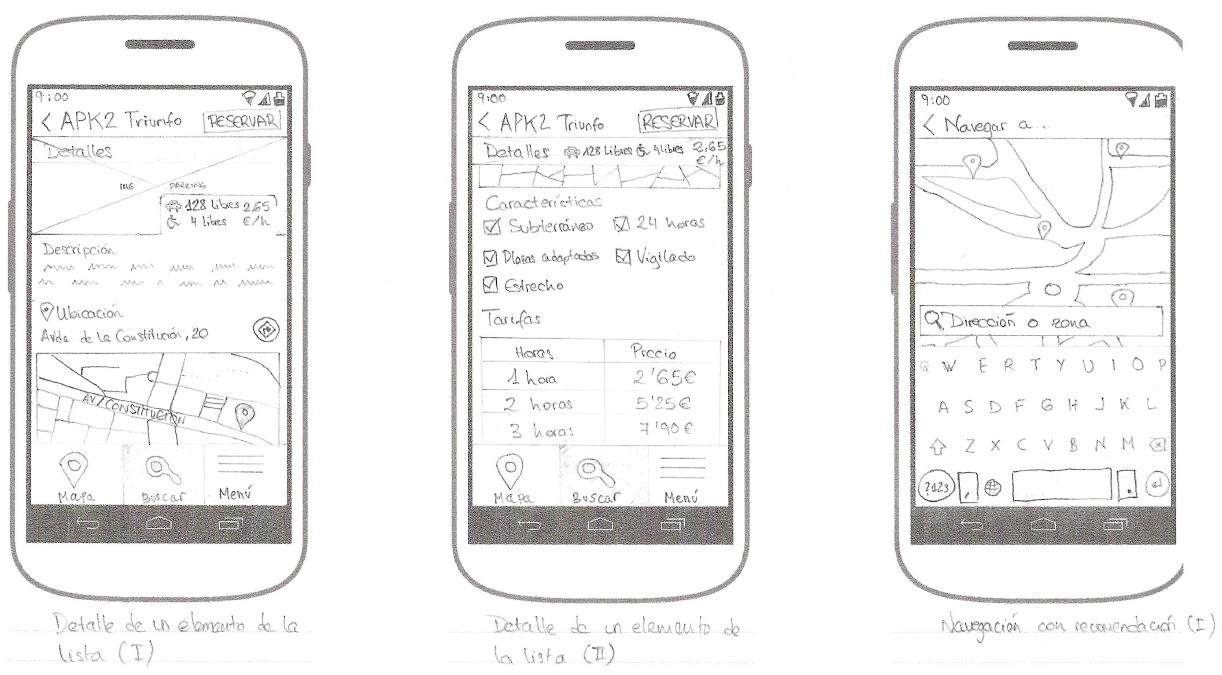 9:00
< APK2 Triunfo RESERVAR
Detalles
IMG PARKING
128 libres 2,65
4 libres €/h
Descripción
Ubicación
Avda de la Constitución, 20
AV/CONSTITUCIÓN
Mapa Buscar Menú
Detalle de un elemento de la
lista (I)
9:00
< APK2 Triunfo RESERVAR
Detalles 128 Libres 4 libres 2,65
€/h
Características
Subterráneo 24 horas
Plazas adaptadas Vigilado
Estrecho
Tarifas
Horas Precio
1 hora 2'65€
2 horas 5'25€
3 horas 7'90€
Mapa Buscar Menú
Detalle de un elemento de
la lista (II)
9:00
< Navegar a...
Dirección o zona
Q W E R T Y U I O P
A S D F G H J K L
Z X C V B N M
?123 , .
Navegación con recomendación (I)